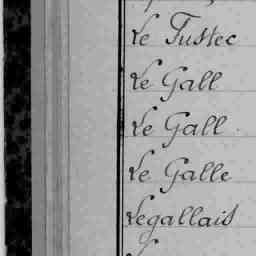 Le Fustec
Le Gall
Le Gall
Le Galle
Legallais